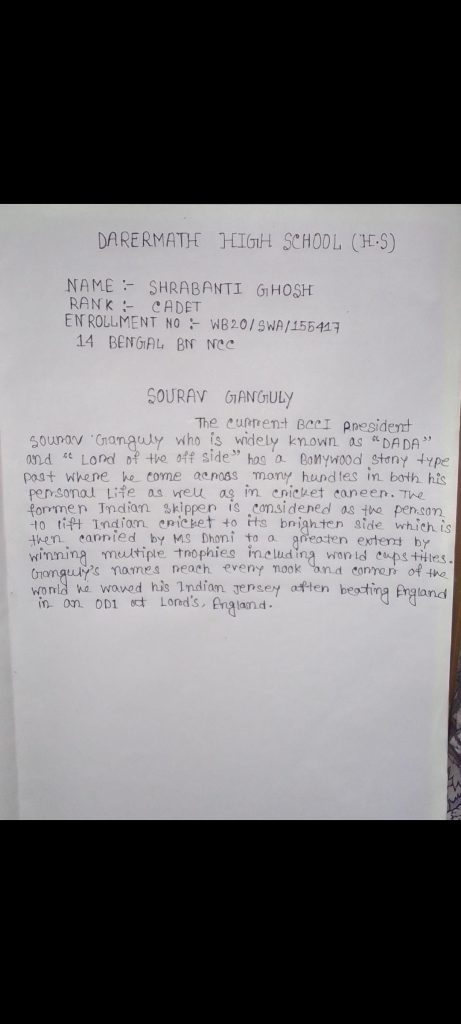 DARERMATH HIGH SCHOOL (H.S)
NAME :- SHRABANTI GHOSH
RANK :- CADET
ENROLLMENT NO :- WB20/SWA/155417
14 BENGAL BN NCC
SOURAV GANGULY
The current BCCI president
sourav Ganguly who is widely known as "DADA"
and "Lord of the off side" has a Bollywood story type
past where he come across many hurdles in both his
personal Life as well as in cricket career. The
former Indian skipper is considered as the person
to lift Indian cricket to its brighter side which is
then carried by MS Dhoni to a greater extent by
winning multiple trophies including world cups titles.
Ganguly's names reach every nook and corner of the
world he waved his Indian jersey after beating England
in an ODI at Lord's, England.